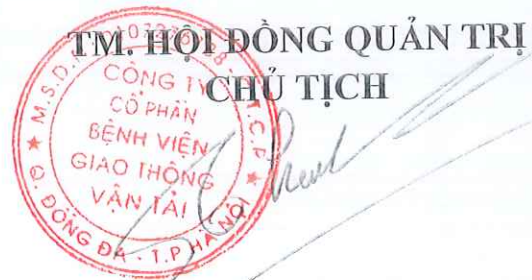 TM. HỘI ĐỒNG QUẢN TRỊ
CHỦ TỊCH
CÔNG TY
CỔ PHẦN
BỆNH VIỆN
GIAO THÔNG
VẬN TẢI
Q. ĐỐNG ĐA - T.P HÀ NỘI